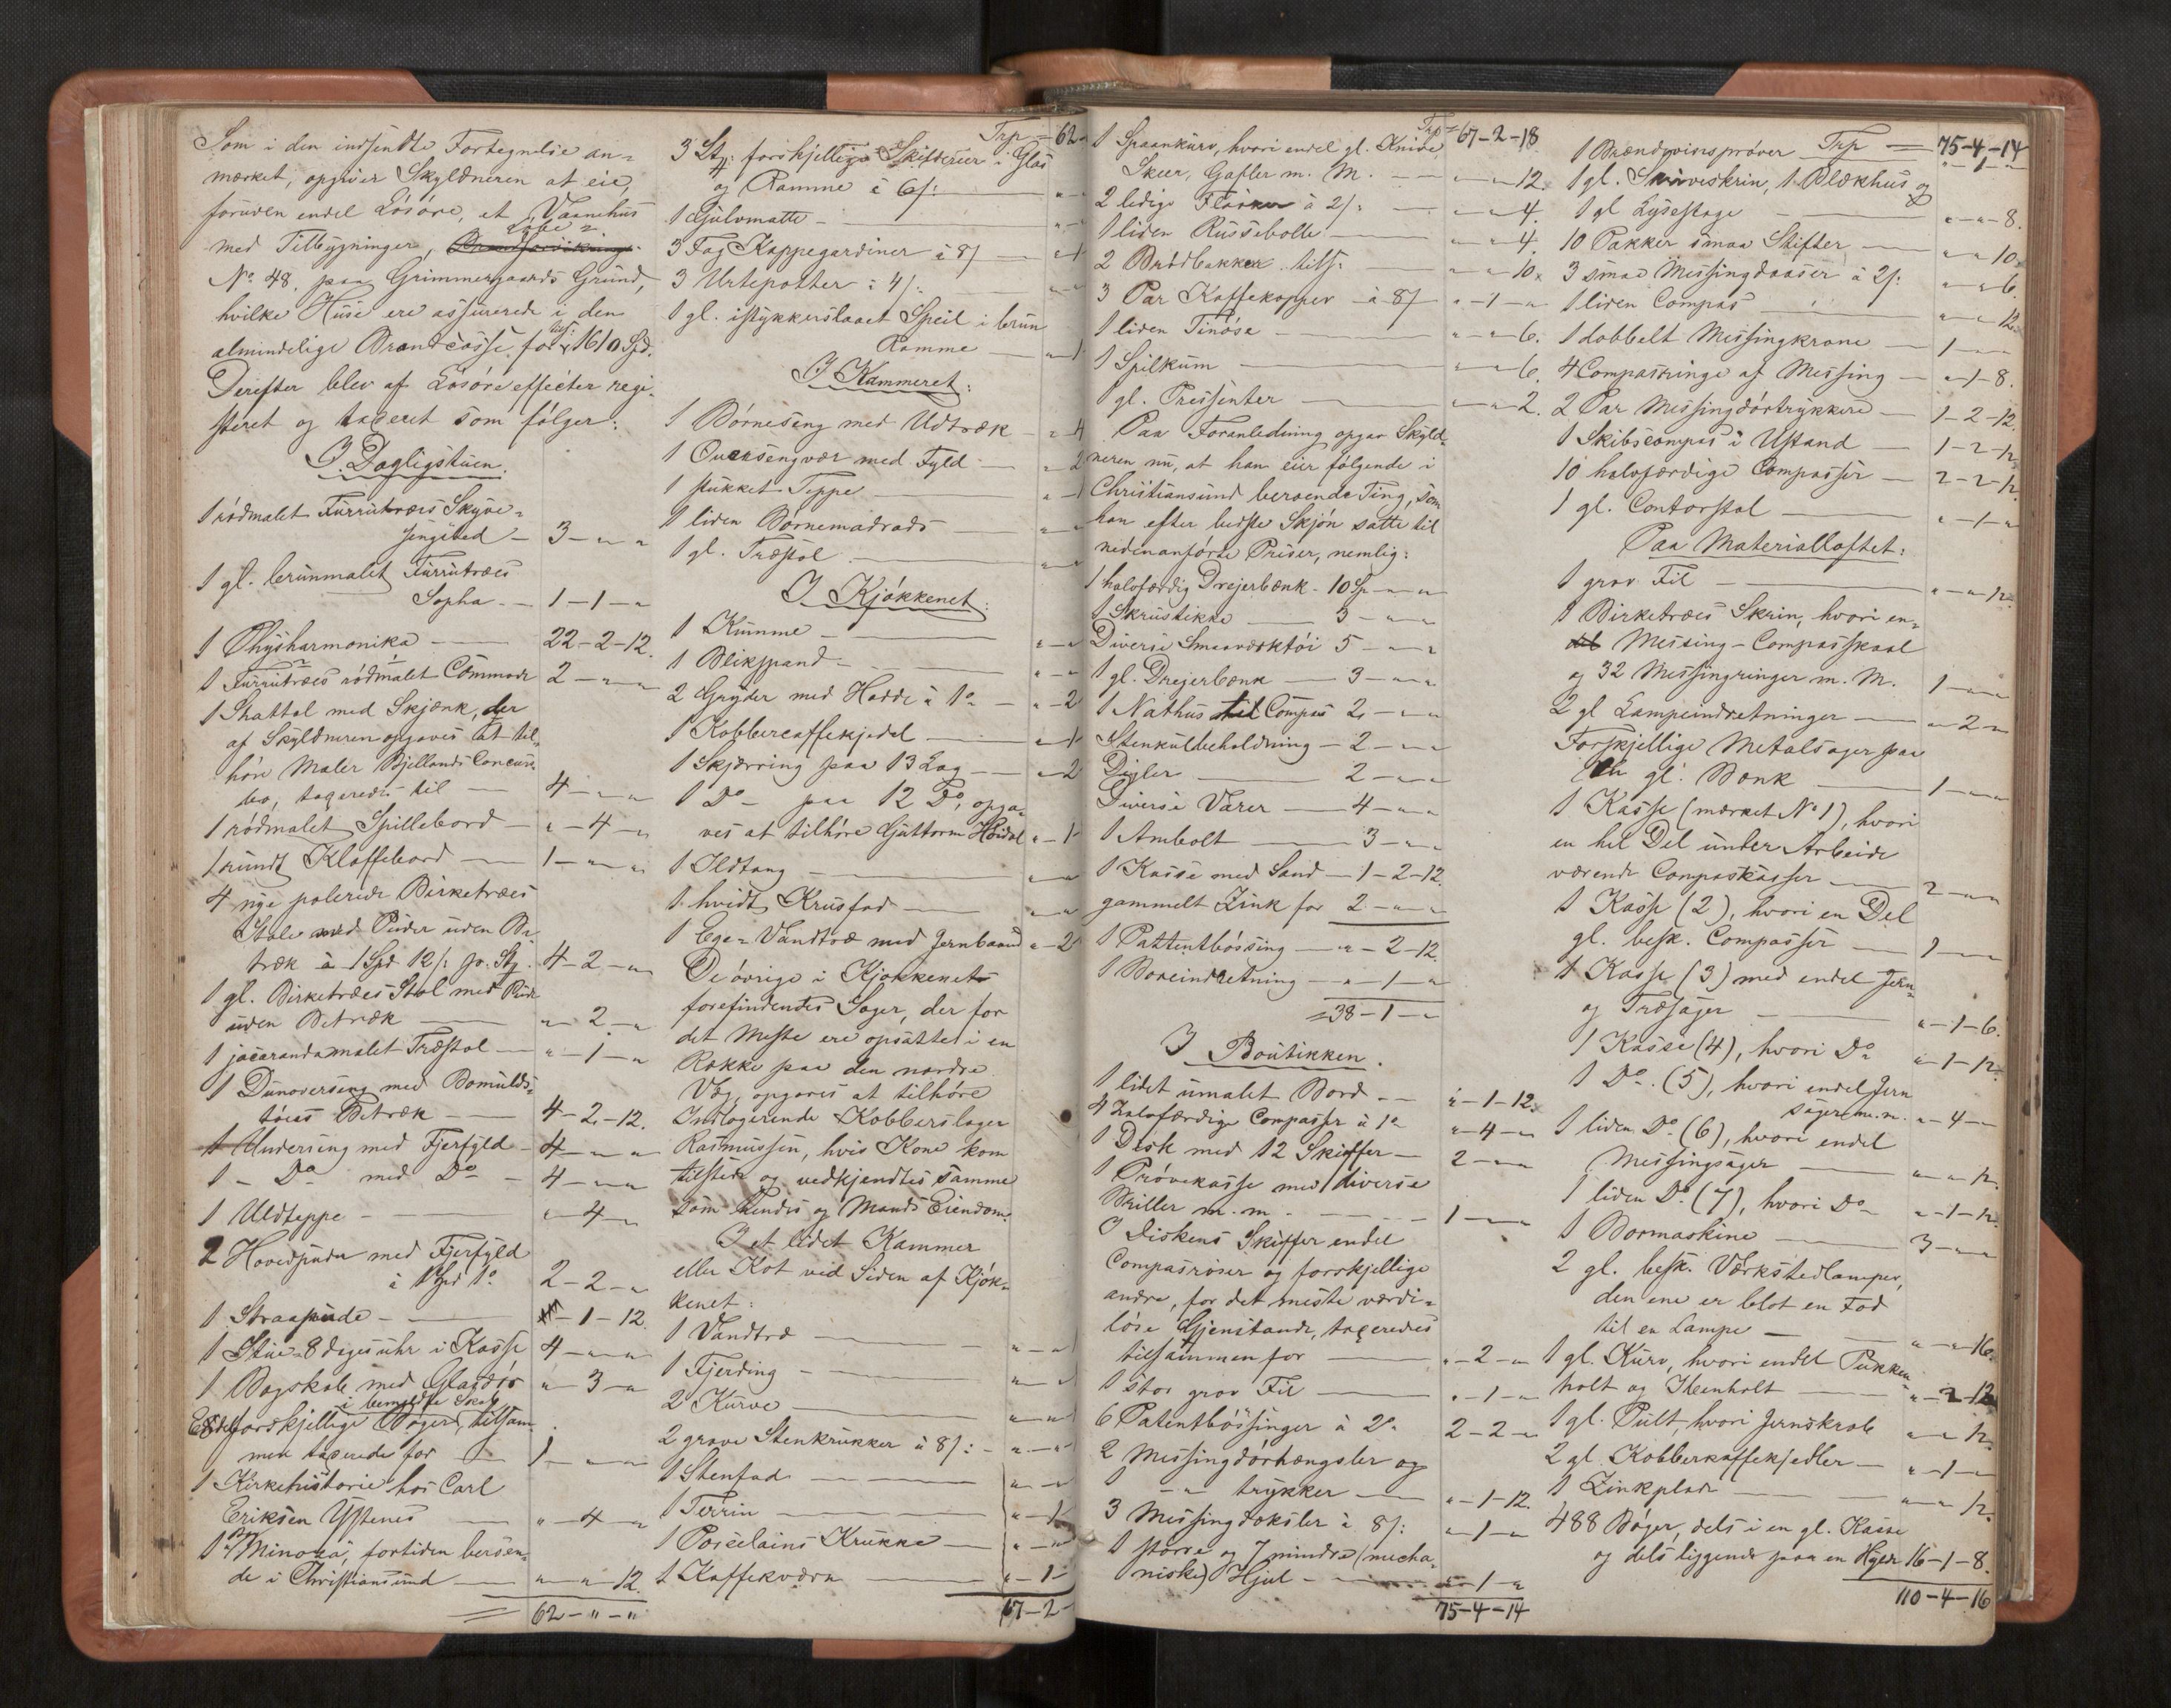 Som i den indsendte Fortegnelse an=
mærket, opgiver Skyldneren at eie,
foruden endel Lösöre, et Vaanehus
Løbe=
med Tilbygninger,
No. 48. paa Grimmergaards Grund,
hvilke Huse ere assurerede i den
almindelige Brandcasse for 1610 Spd.
Derefter blev af Lösöreeffecter regi=
streret og taxeret som fölger:
I Dagligstuen.
1 rödmalet Furrutræes Skyve=
sengsted - 3 - " - "
1 gl. brunmalet Furrutræes
Sopha - 1 - 1 - "
1 Physharmonika 22 - 2 - 12.
1 Furrutræes rödmalet Commode 2 - " - "
1 Shattol med Skjænk, der
af Skyldneren opgaves at til=
höre Maler Bjellands Concurs=
bo, taxeredes til 4 - " - "
1 rödmalet Spillebord " - 4 - "
1 rundt Klaffebord 1 - " - "
4 nye polerede Birketræes
Stole med Puder uden Be=
træk à 1 Spd 12 /: pr. Stg. 4 - 2 - "
1 gl. Birketræes Stol med Pude
uden Betræk " - 2 - "
1 jacarandamalet Træstol " - 1 - "
1 Dunoverseng med Bomulds=
töies Betræk 4 - 2 - 12.
1 Underseng med Fjerfyld 4 - " - "
1 - Do med Do - 4 - " - "
1 Uldteppe " - 4 - "
2 Hovedpuder med Fjerfyld
à 1 Spd 1o 2 - 2 - "
1 Straapude - " - 1 - 12.
1 Stue=8 dagesuhr i Kasse 4 - " - "
1 Bogskab med Glasdör " - 3 - "
i bemeldte Skab
Endel forskjellige Böger, tilsam=
men taxerede for 1 - " - "
1 Kirkehistorie hos Carl
Eriksen Ystenes " - 4 - "
1 "Minona", fortiden beroen=
de i Christiansund " - " - 12.
62 - " - "
Trp = 62
3 Stg: forskjellige Skilderier i Glas
og Ramme à 6 /:
1 Gulvmatte
3 Fag Kappegardiner à 8 /
3 Urtepotter à 4 /:
1 gl. istykkerslaaet Speil i brun
Ramme
I Kammeret:
1 Börneseng med Udtræk " - 4
1 Overhengvær med Fyld " - 2
1 stukket Teppe " - 1
1 liden Börnemadrads
1 gl. Træstol
I Kjökkenet:
1 Kumme
1 Blikspand
2 Gryder med Hadde à 1o " - 2
1 Kobbercaffekjedel " - 1
1 Skjærring paa 13 Lag " - 2
1 Do paa 12 Do, opga=
ves at tilhöre Guttorm Höidal " - 1
1 Ildtang
1 hvidt Krusfad
1 Ege=Vandtræ med Jernbaand " - 2
De övrige i Kjökkenet
forefindendes Sager, der for
det Meste ere opsatte i en
Række paa den nordre
Væg, opgaves at tilhöre
Indlogerende Kobberslager
Rasmussen, hvis Kone kom
tilstede og vedkjendtes samme
som hendes og Mands Eiendom.
I et lidet Kammer
eller Kot ved Siden af Kjök=
kenet:
1 Vandtræ
1 Fjerding
2 Kurve
2 grove Stenkrukker à 8 /:
1 Stenfad
1 Terrin
1 Porcelains Krukke
1 Kaffekværn " - 1
67 - 2 -
Trp = 67 - 2 - 18.
1 Spaankurv, hvori endel gl. Knive,
Skeer, Gafler m. M. " - " - 12.
2 ledige Flasker à 2 /: " - " - 4.
1 liden Russebolle " - " - 4.
2 Brödbakker tils: " - " - 10.
3 Par Kaffekopper à 8 / " - 1 - "
1 liden Tinöse " - " - 6.
1 Spilkum " - " - 6.
1 gl. Pressenter " - " - 2.
Paa Foranledning opgav Skyld=
neren nu, at han eier fölgende i
Christiansund beroende Ting, som
han efter bedste Skjön satte til
nedenanförte Priser, nemlig:
1 halvfærdig Drejerbænk 10 Sp - " - "
1 Skrustikke 3 - " - "
Diverse Smaaverktöi 5 - " - "
1 gl. Drejerbænk 3 - " - "
1 Nathus til Compas 2 - " - "
Stenkulbeholdning - 2 - " - "
Digler 2 - " - "
Diverse Varer 4 - " - "
1 Ambolt 3 - " - "
1 Kasse med Sand - 1 - 2 - 12.
gammelt Zink for 2 - " - "
1 Pattentbössing " - 2 - 12.
1 Boreindretning " - 1 - "
= 38 - 1 - "
I Boutikken.
1 lidet umalet Bord " - 1 - 12.
4 halvfærdige Compasser à 1o " - 4 - "
1 Disk med 12 Skuffer 2 - " - "
1 Prövekasse med diverse
Briller m. m. 1 - " - "
I Diskens Skuffer endel
Compasroser og forskjellige
andre, for det meste værdi=
löse Gjenstande, taxeredes
tilsammen for " - 2 - "
1 stor grov Fil " - 1 - "
6 Patentbössinger à 2o 2 - 2 - "
2 Messingdörhængsler og
1 - " - trykker " - 1 - 12.
3 Messingdoksler à 8 /: " - 1 - "
1 större og 7 mindre (mecha=
niske) Hjul " - 1 - "
75 - 4 - 14
Trp = 75 - 4 - 14
1 Brændevinsprøver " - 1 - "
1 gl. Skriveskrin, 1 Blækhus og
1 gl Lysestage " - " - 8.
10 Pakker smaa Stifter " - " - 10.
3 smaa Messingdaaser à 2 /: " - " - 6.
1 liden Compas " - " - 12.
1 dobbelt Messingkrane 1 - " - "
4 Compasringe af Messing " - 1 - 8.
2 Par Messingdörtrykkere 1 - 2 - 12.
1 Skibscompas i Ustand 1 - 2 - 12
10 halvfærdige Compasser 2 - 2 - 12.
1 gl. Contorstol " - 1 - "
Paa Materialloftet:
1 grov Fil " - " - 12.
1 Birketræes Skrin, hvori en=
del Messing-Compasskaal
og 32 Messingringer m. M. 1 - " - "
2 gl Lampeindretninger " - 2 - "
Forskjellige Metalsager paa
en gl. Bænk 1 - " - "
1 Kasse (mærket No 1), hvori
en hel Del under Arbeide
værende Compaskasser 2 - " - "
1 Kasse (2), hvori en Del
gl. besk. Compasser 1 - " - "
1 Kasse (3) med endel Jern=
og Træsager " - 1 - 6.
1 Kasse (4), hvori Do " - 1 - 12.
1 Do. (5), hvori endel Jern
sager m. m. " - 4 - "
1 liden Do (6), hvori endel
Messingsager " - " - 12.
1 liden Do. (7), hvori Do " - 1 - 12.
1 Bormaskine 3 - " - "
2 gl. besk. Værkstedlamper,
den ene er blot en Fod
til en Lampe " - " - 16.
1 gl. Kurv, hvori endel Pukken=
holt og Ibenholt " - 2 - 12
1 gl. Pult, hvori Jernskrab " - " - 12.
2 gl. Kobberkaffekjedler " - 1 - "
1 Zinkplade " - " - 12.
488 Böger, dels i en gl. Kasse
og dels liggende paa en Hyer 16 - 1 - 8.
110 - 4 - 16